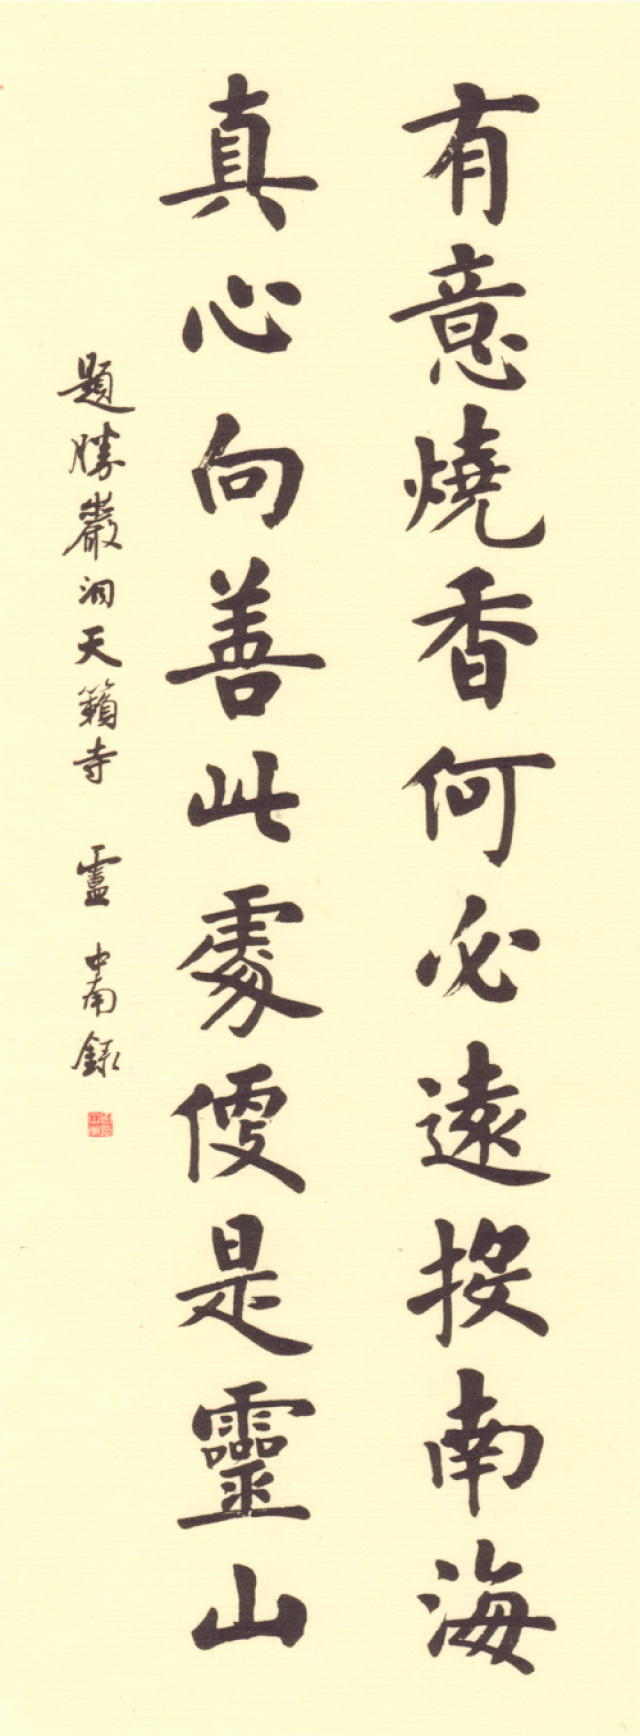 有意燒香何必遠投南海
真心向善此處便是靈山
題勝巖洞天籟寺 盧中南錄